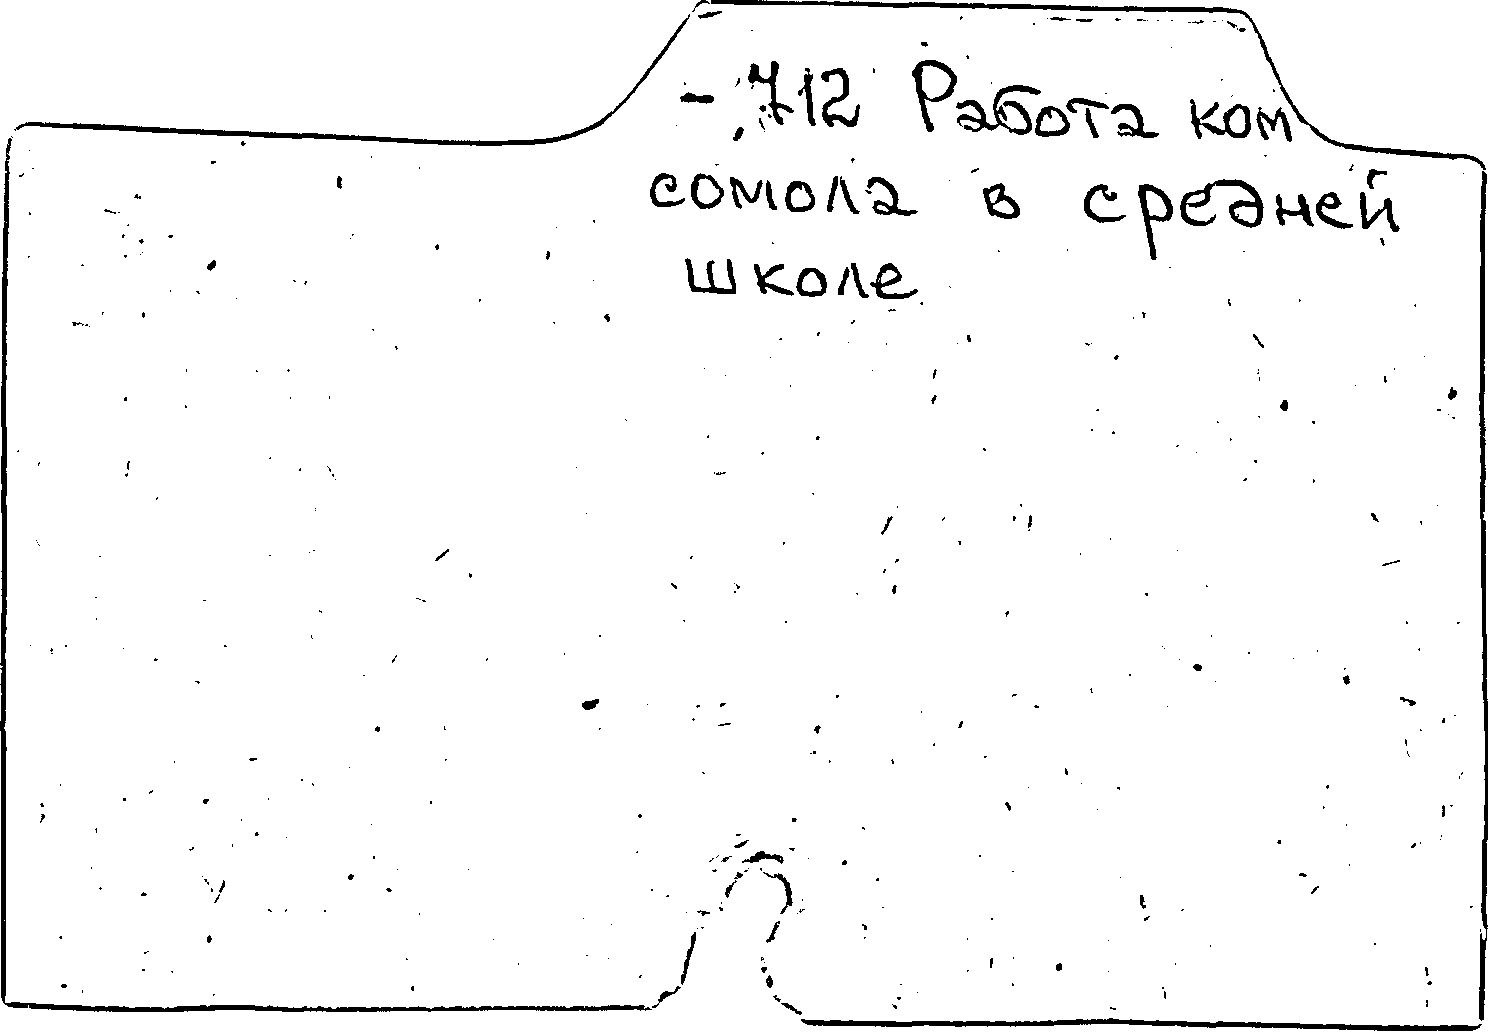 -712 Работа ком
сомола в средней
школе